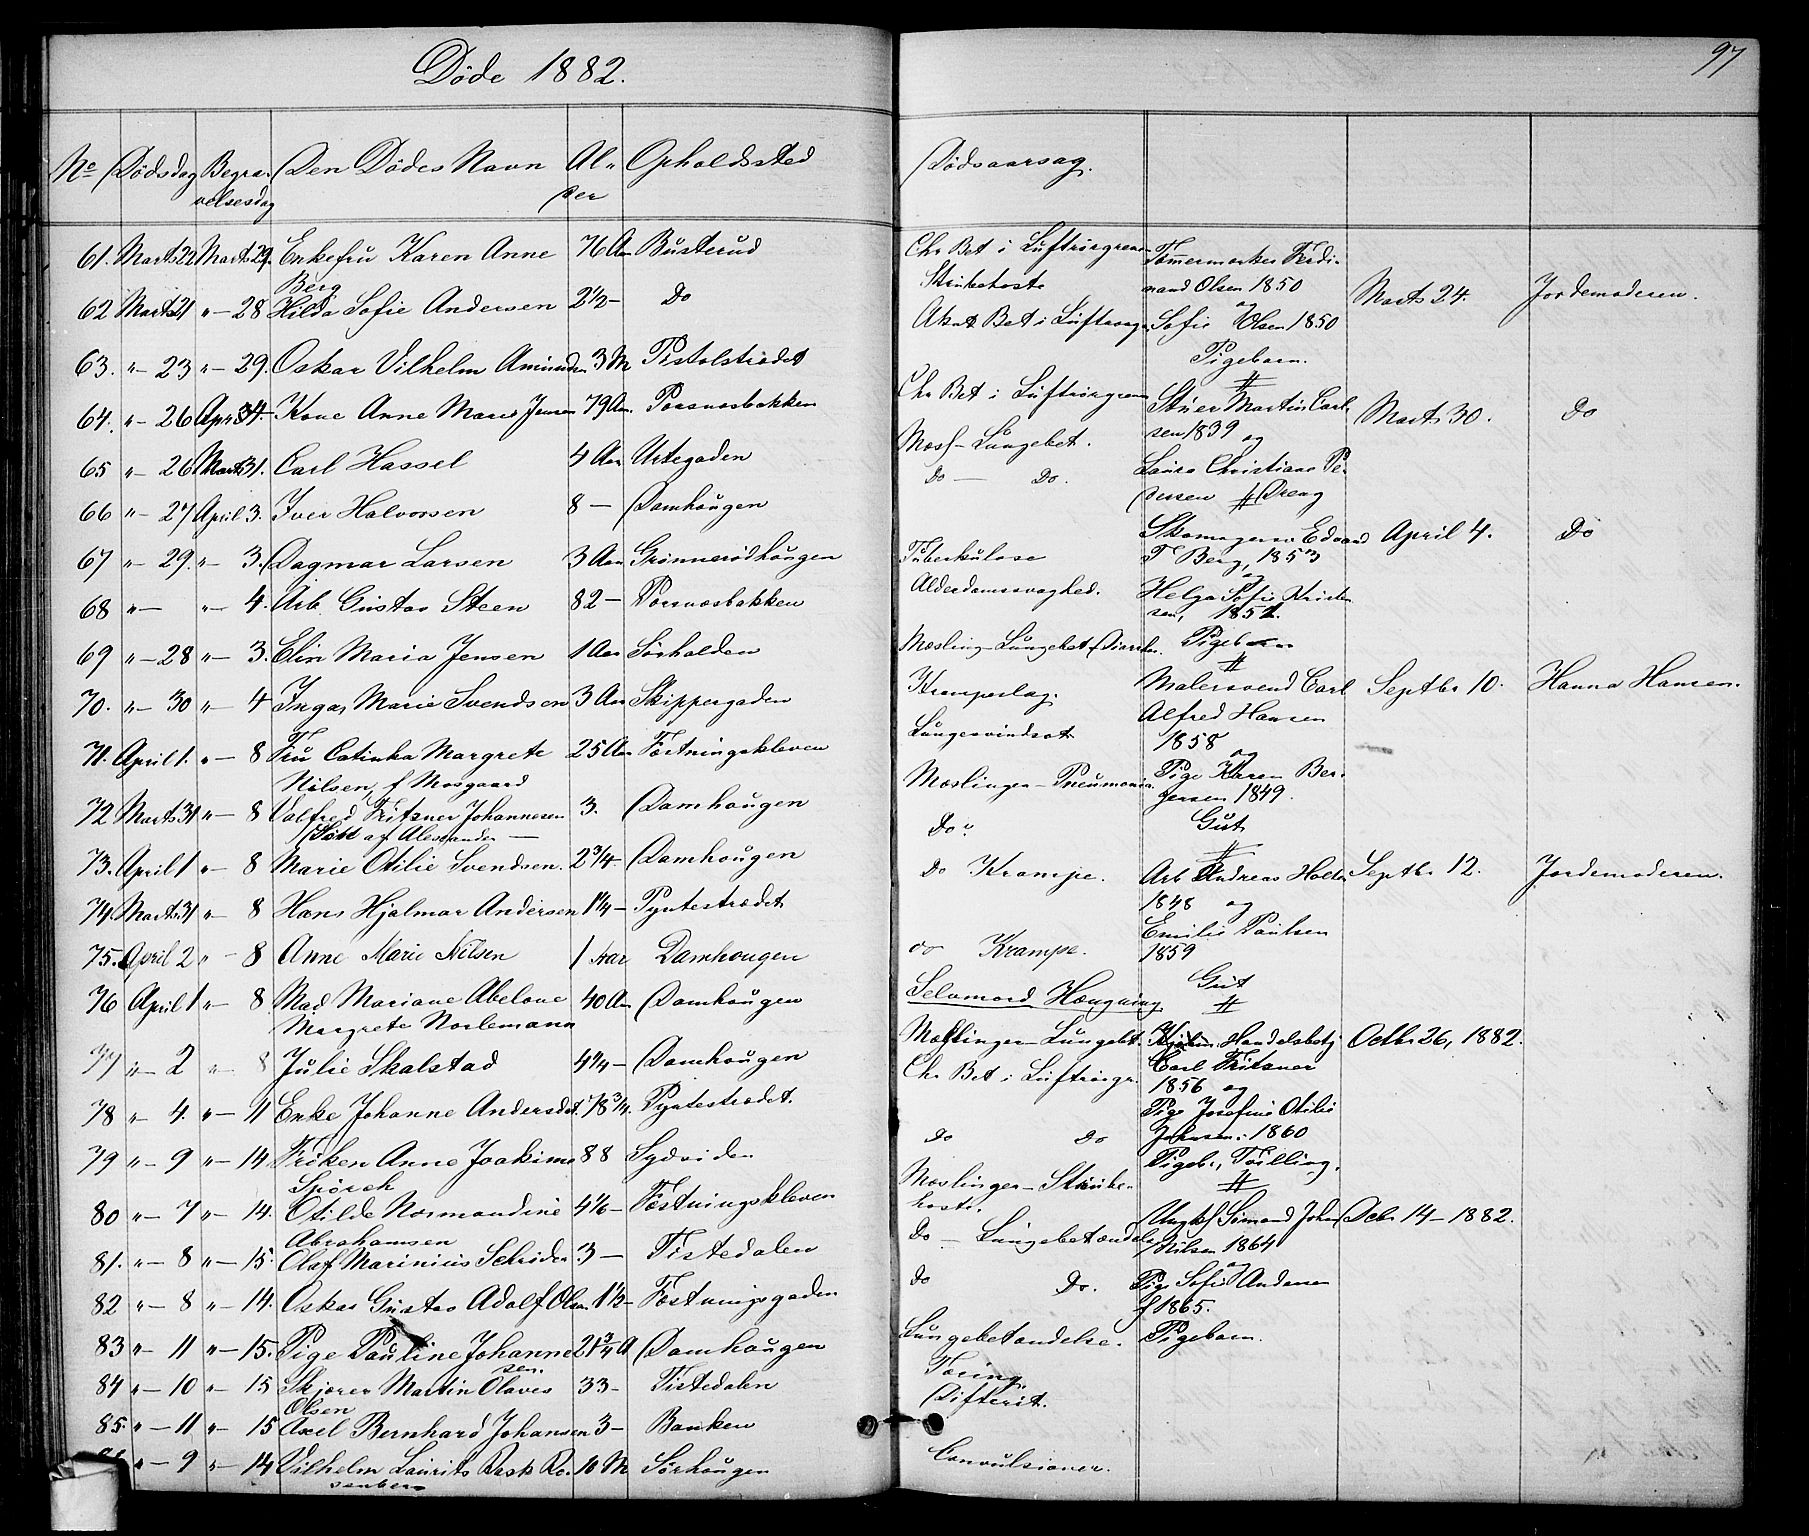 Døde 1882.
97
No Dødsdag Begra- Den Dødes Navn Al- Opholdssted
velsesdag der
Dødsaarsag.
61. Marts 22 Marts 29. Enkefru Karen Anne 76 Aar Busterud
Berg
62 Marts 21 " 28 Hilda Sofie Andersen 2 1/2 — Do
63. " — 23 " — 29. Oskar Vilhelm Amundsen 3 M Pistolstrædet
64. " — 26 April 4. Kone Anne Marie Jensen 79 Aar Porsnæsbakken
65 " — 26 Marts 31. Carl Hassel 4 Aar Urtegaden
66 " — 27 April 3. Iver Halvorsen 8 — Damhaugen
67 " — 29. " — 3. Dagmar Larsen 3 Aar Grønnerødhaugen
68 " — " — 4. Arb. Gustav Steen 82 — Porsnæsbakken
69 " — 28 " — 3. Elin Maria Jensen 1 Aar Sørhalden
70. " — 30 " — 4 Inga Marie Svendsen 3 Aar Skippergaden
71. April 1. " — 8 Fru Catinka Margrete 25 Aar Fæstningskleven
Nilsen, f Mosgaard
72 Marts 31 " — 8 Valfred Fritzner Johannesen 3. Damhaugen
af Alexander —
73. April 1 " — 8 Marie Otilie Svendsen. 2 3/4 — Damhaugen
74 Marts 31 " — 8 Hans Hjalmar Andersen 1 1/4 — Pyntestrædet
75. April 2 " — 8 Anne Marie Nilsen 1 Aar Damhougen
76 April 1 " — 8 Mad Mariane Abelone 40 Aar Damhaugen
Margrete Norlemann
77 " — 2 " — 8 Julie Skalstad 4 1/4 — Damhaugen
78 " — 4. " — 11 Enke Johanne Andersdt. 78 3/4. Pyntestrædet.
79 " — 9 " — 14 Frøken Anne Joakime 88 Sydsiden
Spørck
80 " — 7 " — 14. Otilde Normandine 4 1/6 — Fæstningskleven
Abrahamsen
81. " — 8 " — 15. Olaf Marinius Schrøder 3 — Tistedalen
82 " — 8 " — 14. Oskar Gustav Adolf Olsen 1 1/2 — Fæstningsgaden
83 " — 11 " — 15. Pige Pauline Johanne 21 3/4 A Damhaugen
sen
84 " — 10 " — 15 Skjærer Martin Olaves 33 — Tistedalen
Olsen
85. " — 11 " — 15 Axel Bernhard Johansen 3 — Banken
" — 9 " — 14 Vilhelm Laurits Rask Ro- 10 M Sørhaugen
senberg
Chr Bet i Luftrørgrenene
Strubehoste
Akut Bet i Luftrørgr
Chr Bet i Luftrørgrene
Mæsl- Lungebet.
Do — Do.
Tuberkulose
Alderdomssvaghed.
Mæsling- Lungebet Diarrhe.
Krampeslag.
Lungesvindsot
Mæslinger — Pneumonia
Do "
Do Krampe.
do Krampe.
Selvmord Hængning
Mæslinger — Lungebet.
Chr Bet i Luftrørgr.
Do Do
Mæslinger — Strube-
hoste.
Do — Lungebetændelse
do Do.
Lungebetændelse.
Tæring.
Difterit.
Convulsioner.
Tømmermerker Ferdi-
nand Olsen 1850 Marts 24. Jordemoderen.
og
Sofie Olsen 1850
Pigebarn.
#
Stuer Martin Carl- Marts 30. Do
sen 1839
og
Laura Christiane Pe-
dersen # Dreng
Skomagersv. Edvard April 4. Do
T Berg, 1853
og
Helga Sofie Kristen
sen, 1852.
Pigebarn
#
Malersvend Carl Septbr 10. Hanna Hansen.
Alfred Hansen
1858
og
Pige Karen Ber-
gersen 1849.
Gut
#
Arb Andreas Holter Septbr 12. Jordemoderen.
1848 og
Emilie Paulsen
1859
Gut
#
Handelsbetj Octbr 26, 1882.
Carl Fritzner
1856 og
Pige Josefine Otilie
Johnsen. 1860
Pigeb., Tvilling.
#
Ungk Sømand Johan Octbr 14 — 1882.
Nilsen 1864
og
Pige Sofie Andersen
f 1865.
Pigebarn.